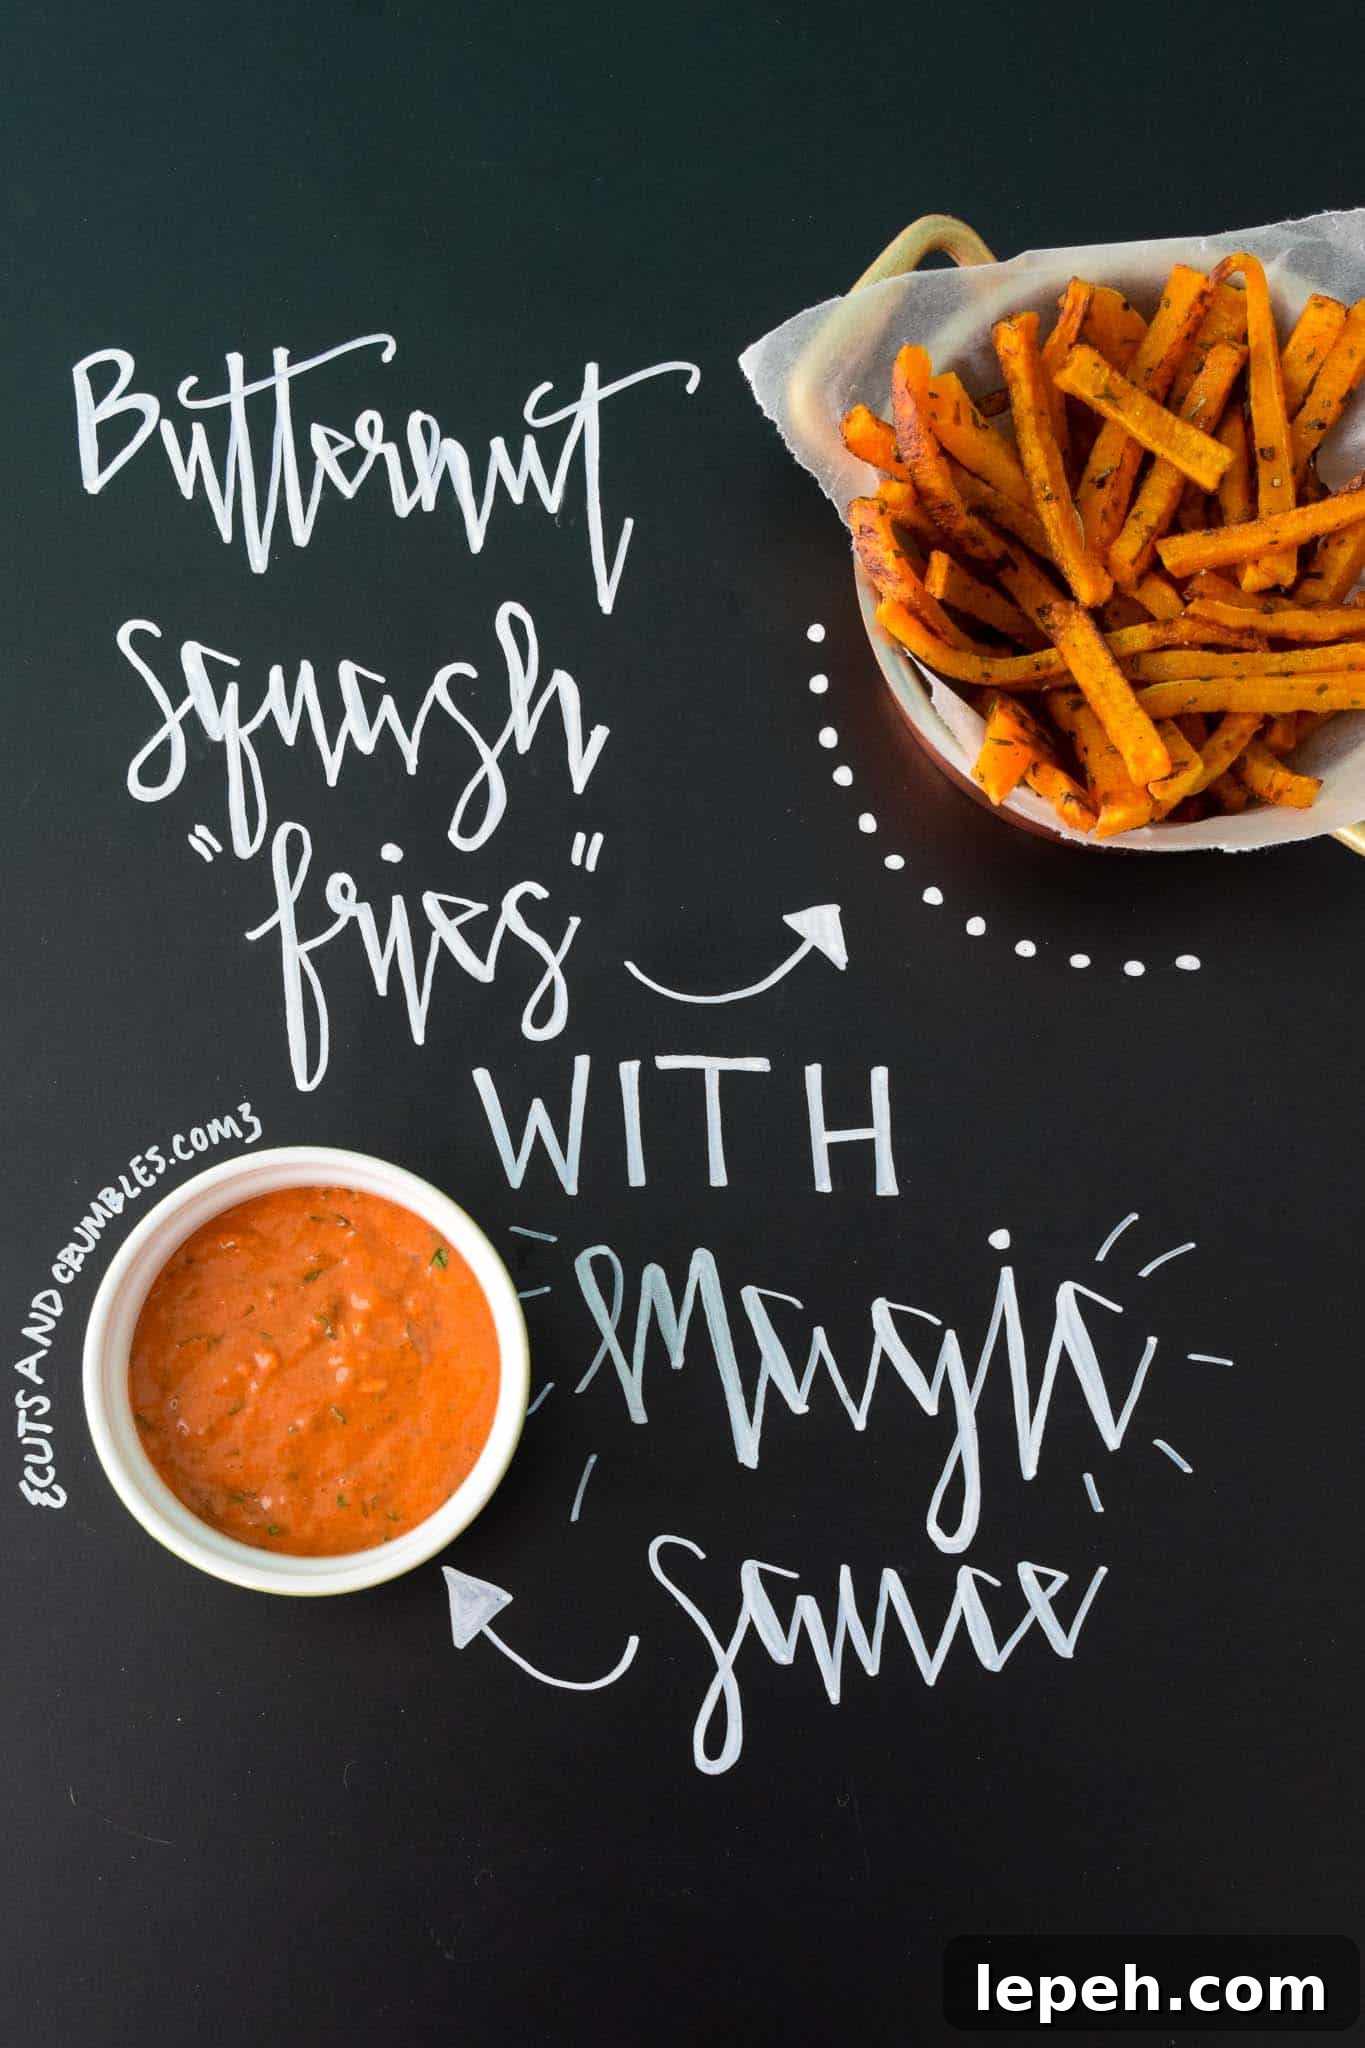 Butternut
Squash
"fries"
WITH
Magic
Sauce
{CUTSANDCRUMBLES.COM}
lepeh.com